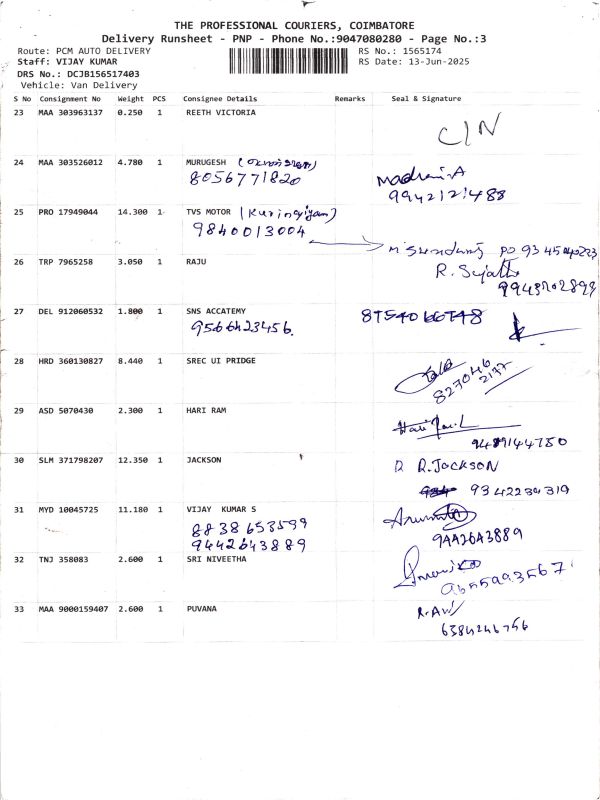 THE PROFESSIONAL COURIERS, COIMBATORE
Delivery Runsheet - PNP - Phone No.:9047080280 - Page No.:3
Route: PCM AUTO DELIVERY
RS No.: 1565174
Staff: VIJAY KUMAR
RS Date: 13-Jun-2025
DRS No.: DCJB156517403
Vehicle: Van Delivery
S No Consignment No Weight PCS Consignee Details Remarks Seal & Signature
23 MAA 303963137 0.250 1 REETH VICTORIA
C/N
24 MAA 303526012 4.780 1 MURUGESH
8056771820
9942121488
25 PRO 17949044 14.300 1 TVS MOTOR
9840013004
26 TRP 7965258 3.050 1 RAJU R. Sujatha
27 DEL 912060532 1.800 1 SNS ACCATEMY
9566423456.
28 HRD 360130827 8.440 1 SREC UI PRIDGE
827046
2177
29 ASD 5070430 2.300 1 HARI RAM
9489144780
30 SLM 371798207 12.350 1 JACKSON R.JACKSON
9342234319
31 MYD 10045725 11.180 1 VIJAY KUMAR S
8838653599
9442643889 9442643889
32 TNJ 358083 2.600 1 SRI NIVEETHA
9655993567
33 MAA 9000159407 2.600 1 PUVANA
6384246756